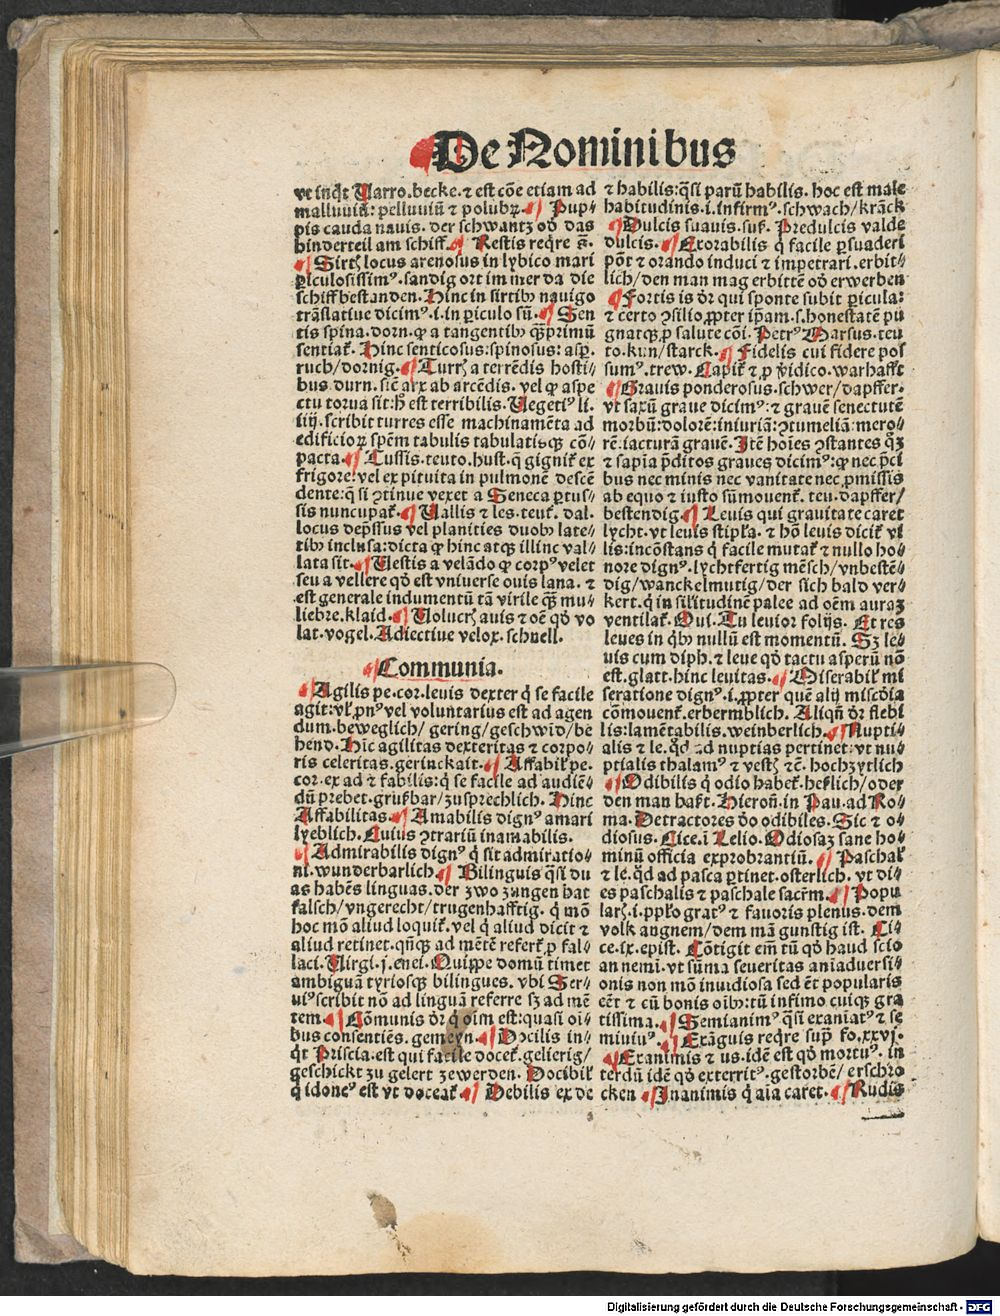 De Nominibus
vt inqͥt Varro. becke. ⁊ est cõe etiam ad
malluuiũ: pelluuiũ ⁊ polubꝝ. ¶ Pup-
pis cauda nauis. der schwantz od das
hinderteil am schiff. ¶ Restis reqͥre s̄.
¶ Sirtꝭ locus arenosus in lybico mari
ꝑiculosissimꝰ. sandig ort im mer da die
schiff bestanden. Hinc in sirtibꝫ nauigo
trãslatiue dicimꝰ. i. in ꝑiculo sũ. ¶ Sen
tis spina. dorn. ꝙ a tangentibꝫ qͣꝫprimũ
sentiat᷑. Hinc senticosus: spinosus: asꝑ.
ruch/ dornig. ¶ Turrꝭ a terrẽdis hosti-
bus durn. sicẽ arx ab arcẽdis. vel ꝙ aspe
ctu torua sit: hͦ est terribilis. Vegetiꝰ li.
iiij. scribit turres esse machinamẽta ad
edificioꝝ spẽm tabulis tabulatisqꝫ cõ-
pacta. ¶ Tussis. teuto. hust. q̃ gignit᷑ ex
frigore: vel ex pituita in pulmonẽ descẽ
dente: q̃ si ꝯtinue vexet a Seneca ꝑtus-
sis nuncupat᷑. ¶ Vallis ⁊ les. teut᷑. dal.
locus dep̃ssus vel planities duobꝫ late-
tibꝫ inclusa: dicta ꝙ hinc atqꝫ illinc val-
lata sit. ¶ Vestis a velãdo ꝙ corpꝰ velet
seu a vellere qd̕ est vniverse ouis lana. ⁊
est generale indumentũ tã virile qͣꝫ mu-
liebre. klaid. ¶ Volucrꝭ auis ⁊ oẽ qd̕ vo
lat. vogel. Adiectiue velox. schnell.
¶ Communia.
¶ Agilis pe. cor. leuis dexter q̇ se facile
agit: vl̕ ꝓnꝰ vel voluntarius est ad agen
dum. beweglich/ gering/ geschwĩd/ be
hend. Hĩc agilitas dexteritas ⁊ corpo-
ris celeritas. gerinckait. ¶ Affabil᷑ pe.
cor. ex ad ⁊ fabilis: q̇ se facile ad audiẽ-
dũ prebet. grußbar/ zusprechlich. Hinc
Affabilitas. ¶ Amabilis dignꝰ amari
lyeblich. Cuius ꝯtrariũ inamabilis.
¶ Admirabilis dignꝰ q̇ sit admiratio-
ni. wunderbarlich. ¶ Bilinguis qͣsi du
as habẽs linguas. der zwo zungen hat
falsch/ vngerecht/ trugenhafftig. q̇ mõ
hoc mõ aliud loquit᷑. vel q̇ aliud dicit ⁊
aliud retinet. qñqꝫ ad mẽtẽ refert᷑ ꝑ fal-
laci. Virgi. j. enei. Quippe domũ timet
ambiguã tyriosqꝫ bilingues. vbi Ser-
uiꝰ scribit nõ ad linguã referre sꝫ ad mẽ
tem. ¶ Cõmunis dr̃ q̇ oĩm est: quasi oi-
bus consentiẽs. gemeyn. ¶ Docilis in-
qͥt Priscia. est qui facile docet᷑. gelierig/
geschickt zu gelert zewerden. Docibil᷑
q̇ idoneꝰ est vt doceat᷑ ¶ Debilis ex de
⁊ habilis: qͣsi parũ habilis. hoc est male
habitudinis. i. infirmꝰ. schwach/ krãck
¶ Dulcis suauis. suß. Predulcis valde
dulcis. ¶ Exorabilis q̇ facile ꝑsuaderi
põt ⁊ orando induci ⁊ impetrari. erbit-
lich/ den man mag erbittẽ od̕ erwerben
¶ Fortis is dr̃ qui sponte subit ꝑicula:
⁊ certo ꝯsilio ꝓpter ip̃am. s. honestatẽ pu
gnatqꝫ ꝓ salute cõi. Petrꝰ Marsus. teu
to. kun/ starck. ¶ Fidelis cui fidere pos
sumꝰ. trew. Capit᷑ ⁊ ꝓ v̕idico. warhafft
¶ Grauis ponderosus. schwer/ dapffer.
vt saxũ graue dicimꝰ: ⁊ grauẽ senectutẽ
morbũ: dolorẽ: iniuriã: ꝯtumeliã: mero-
rẽ: iacturã grauẽ. Itẽ hoĩes ꝯstantes qͣꝫ
⁊ sapĩa p̃ditos graues dicimꝰ: ꝙ nec p̃ci
bus nec minis nec vanitate nec ꝓmissis
ab equo ⁊ iusto sũmouent᷑. teu. dapffer/
bestendig. ¶ Leuis qui grauitate caret
lycht. vt leuis stipl̕a. ⁊ hõ leuis dicit᷑ vi
lis: incõstans q̇ facile mutat᷑ ⁊ nullo ho-
nore dignꝰ. lychtfertig mẽsch/ vnbestẽ-
dig/ wanckelmutig/ der sich bald ver-
kert. q̇ in sil̕itudinẽ palee ad oẽm auraꝫ
ventilat᷑. Oui. Tu leuior folijs. Et res
leues in qͥbꝫ nullũ est momentũ. Sꝫ le-
uis cum diph. ⁊ leue qd̕ tactu asperũ nõ
est. glatt. hinc leuitas. ¶ Miserabil᷑ mi
seratione dignꝰ. i. ꝓpter quẽ alij miscd̕ia
cõmouent᷑. erbermblich. Aliqñ dr̃ flebi
lis: lamẽtabilis. weinberlich. ¶ Nupti-
alis ⁊ le. qd̕ ad nuptias pertinet: vt nu-
ptialis thalamꝰ ⁊ vestꝭ ⁊c̃. hochzytlich
¶ Odibilis q̇ odio habet᷑. heßlich/ oder
den man haßt. Hieroñ. in Pau. ad Ro-
ma. Detractores deo odibiles. Sic ⁊ o-
diosus. Cice. ĩ Lelio. Odiosaꝫ sane ho-
minũ officia exprobrantiũ. ¶ Paschal᷑
⁊ le. qd̕ ad pasca ꝑtinet. osterlich. vt di-
es paschalis ⁊ paschale sacr̃m. ¶ Popu
larꝭ. i. ppl̕o gratꝰ ⁊ fauoris plenus. dem
volk angnem/ dem mã gunstig ist. Ci-
ce. ix. epist. Cõtigit em̃ tũ qd̕ haud scio
an nemi. vt sũma seueritas aniaduersi-
onis non mõ inuidiosa sed ẽt popularis
cẽt ⁊ cũ bonis oĩbꝫ: tũ infimo cuiqꝫ gra
tissima. ¶ Semianimꝰ qͣsi exaniatꝰ ⁊ se
miuiuꝰ. ¶ Exãguis reqͥre supͣ fo. xxvj.
¶ Exanimis ⁊ us. idẽ est qd̕ mortuꝰ. in
terdũ idẽ qd̕ exterritꝰ. gestorbẽ/ erschro
cken ¶ Inanimis q̇ aĩa caret. ¶ Rudis
Digitalisierung gefördert durch die Deutsche Forschungsgemeinschaft - DFG